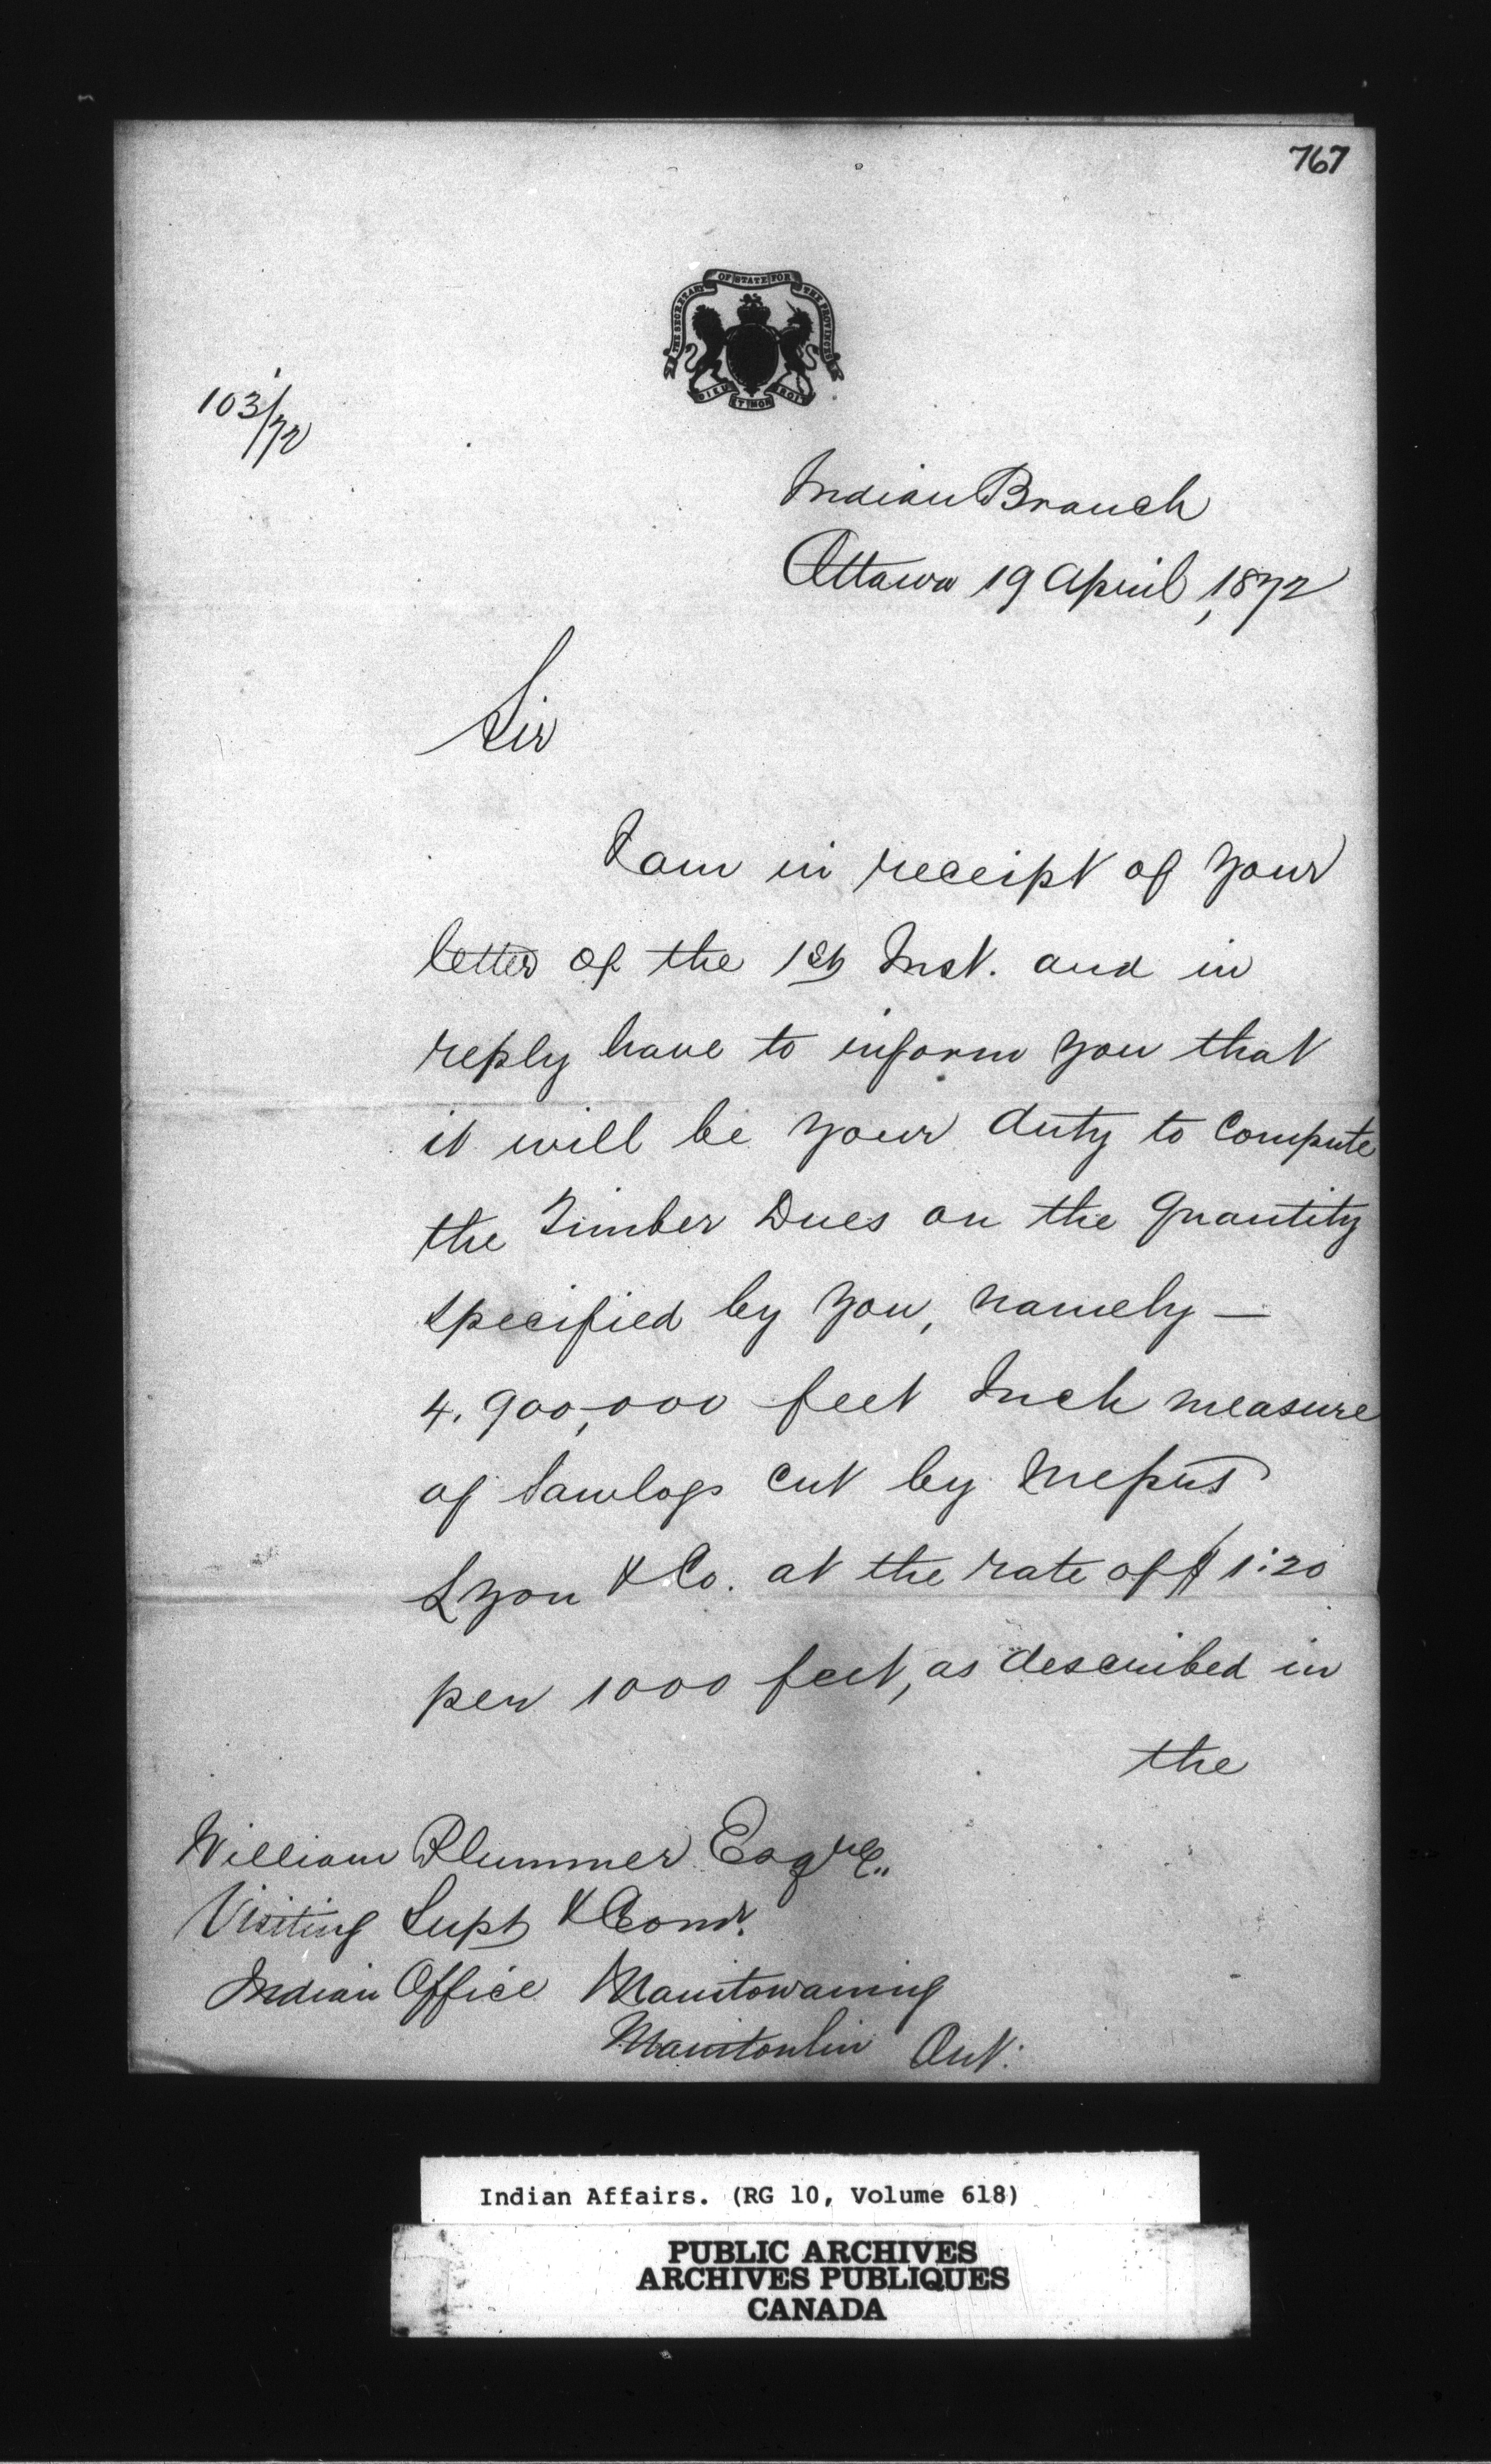 767
THE SECRETARY OF STATE FOR THE PROVINCES
DIEU ET MON DROIT
103/72
Indian Branch
Ottawa 19 April, 1872
Sir
I am in receipt of your
letter of the 1st Inst. and in
reply have to inform you that
it will be your duty to compute
the Timber Dues on the quantity
specified by you, namely —
4,900,000 feet Inch measure
of Sawlogs cut by Messrs
Lyon & Co. at the rate of $1:20
per 1000 feet, as described in
the
William Plummer Esqre.
Visiting Supt & Comr.
Indian Office Manitowaning
Manitoulin Ont:
Indian Affairs. (RG 10, Volume 618)
PUBLIC ARCHIVES
ARCHIVES PUBLIQUES
CANADA